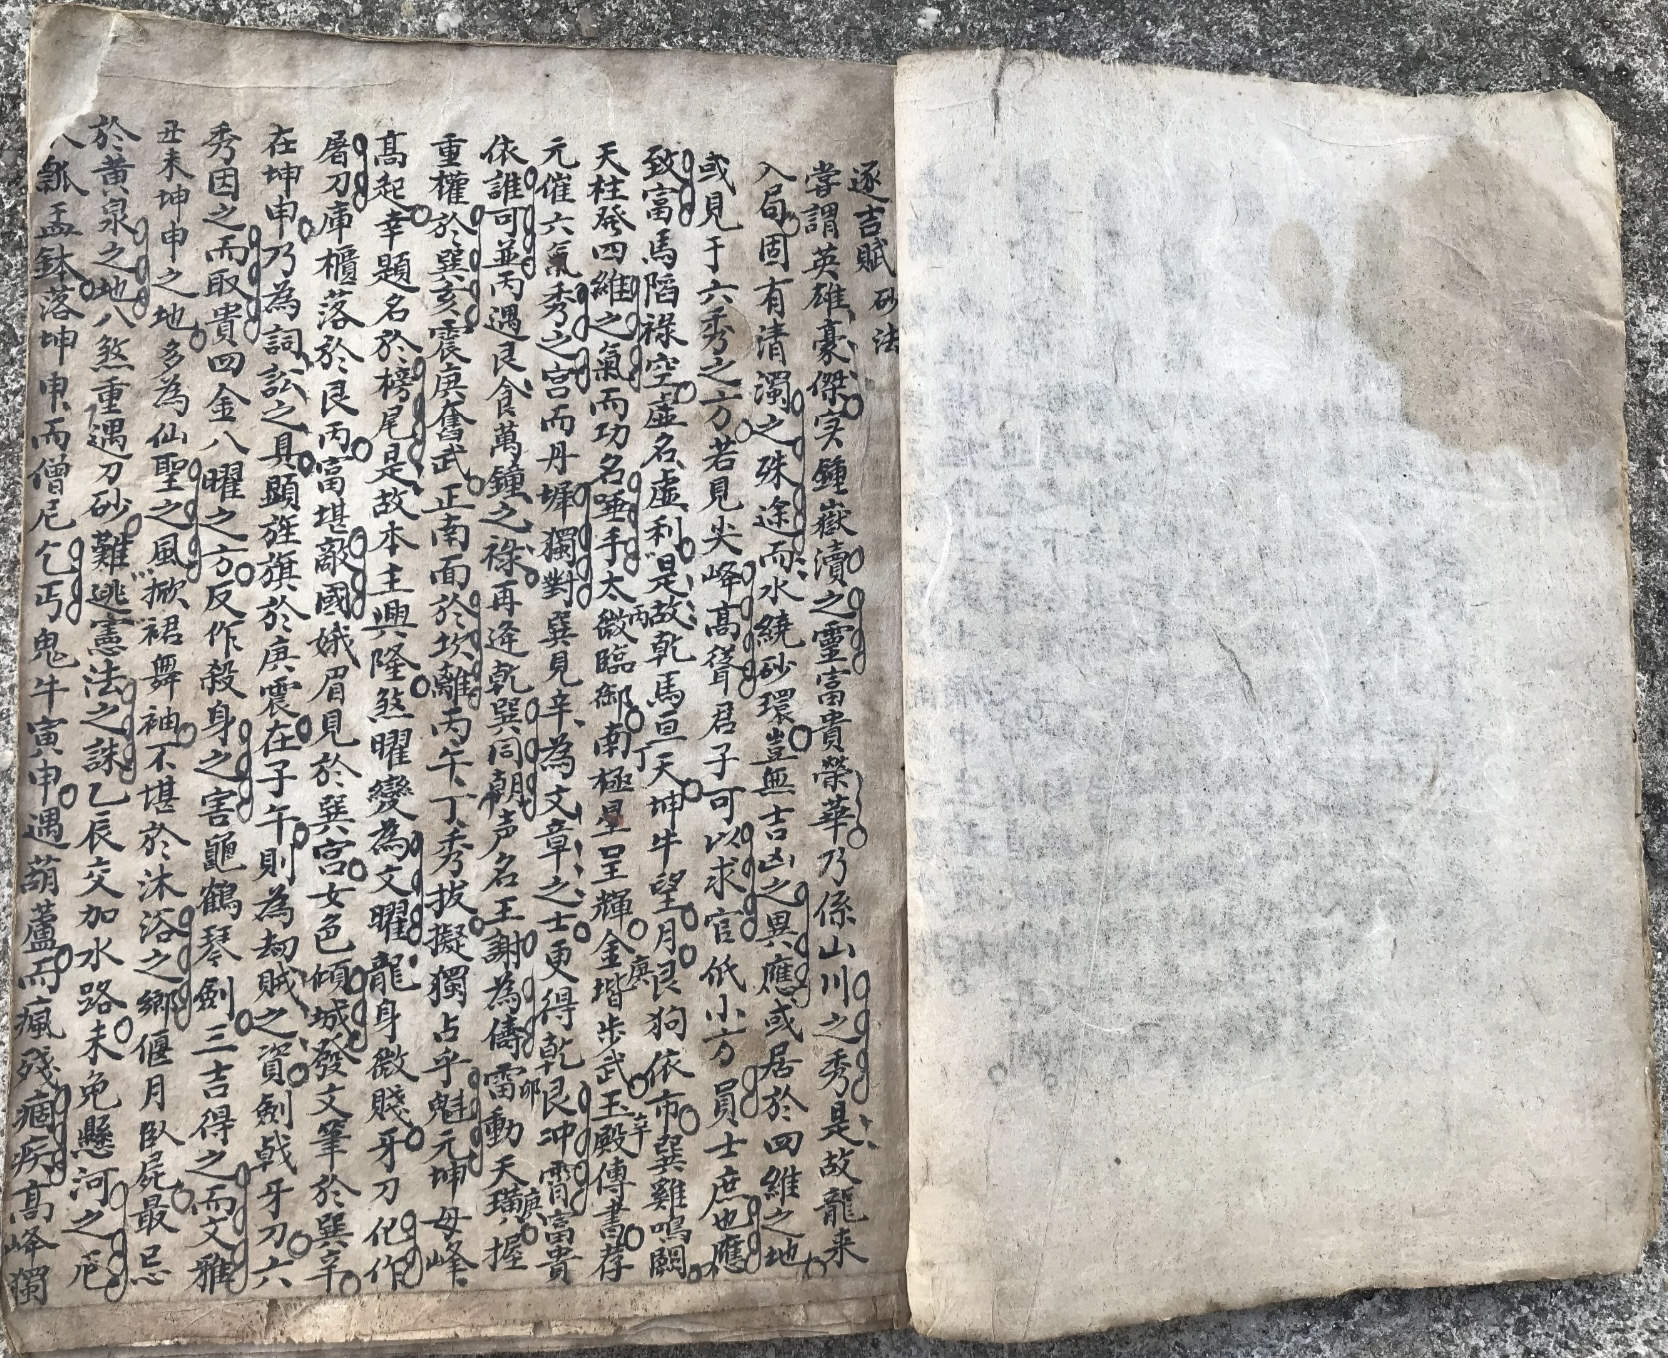 逐吉賦 砂法
嘗謂英雄豪傑实鍾嶽瀆之靈富貴榮華乃係山川之秀是故龍来
入局固有清濁之殊途而水繞砂環豈無吉凶之異應或居於四維之地
或見于六秀之方若見尖峰高聳君子可以求官低小方員士庶也應
致富馬陷祿空虛名虛利是故乾馬亘天坤牛望月艮狗依市巽雞鳴闕
天柱發四維之氣而功名唾手太微丙臨御南極星丁呈輝金堦庚步武玉殿辛傳書荐
元催六氣秀之宫而丹墀獨對巽見辛為文章之士更得乾艮冲霄富貴
依誰可並丙遇艮食萬鍾之祿再逄乾巽同朝声名王謝為儔雷卯動天璜庚握
重權於巽亥震庚奮武正南面於坎離丙午丁秀拔擬獨占乎魁元坤母峰
高起幸題名於榜尾是故本主興隆煞曜變為文曜龍身微賤牙刀化作
屠刀庫櫃落於艮丙富堪敵國娥眉見於巽宫女色傾城發文筆於巽辛
在坤申乃為詞訟之具顯旌旗於庚震在子午則為刼賊之資劍戟牙刀六
秀因之而取貴四金八曜之方反作殺身之害龜鶴琴劍三吉得之而文雅
丑未坤申之地多為仙聖之風掀裙舞袖不堪於沐浴之鄉偃月臥屍最忌
於黄泉之地八煞重遇刀砂難逃憲法之誅乙辰交加水路未免懸河之厄
瓢盂鉢落坤申而僧尼乞丐鬼牛寅申遇葫蘆而瘋殘痼疾高峰獨